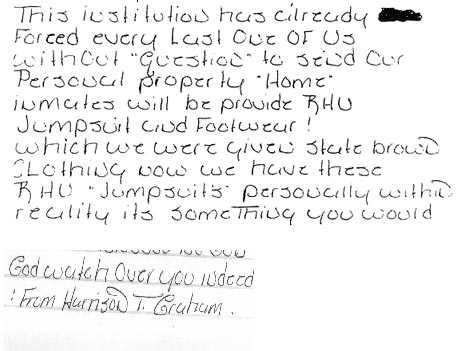 This institution has already
Forced every Last One Of Us
without "Question" to send Our
Personal property "Home"
inmates will be provide RHU
Jumpsuit and Footwear!
which we were given state brown
CLothing now we have these
RHU "Jumpsuits" personally within
reality its someTHing you would
God watch Over you indeed
! From Harrison T. Graham.